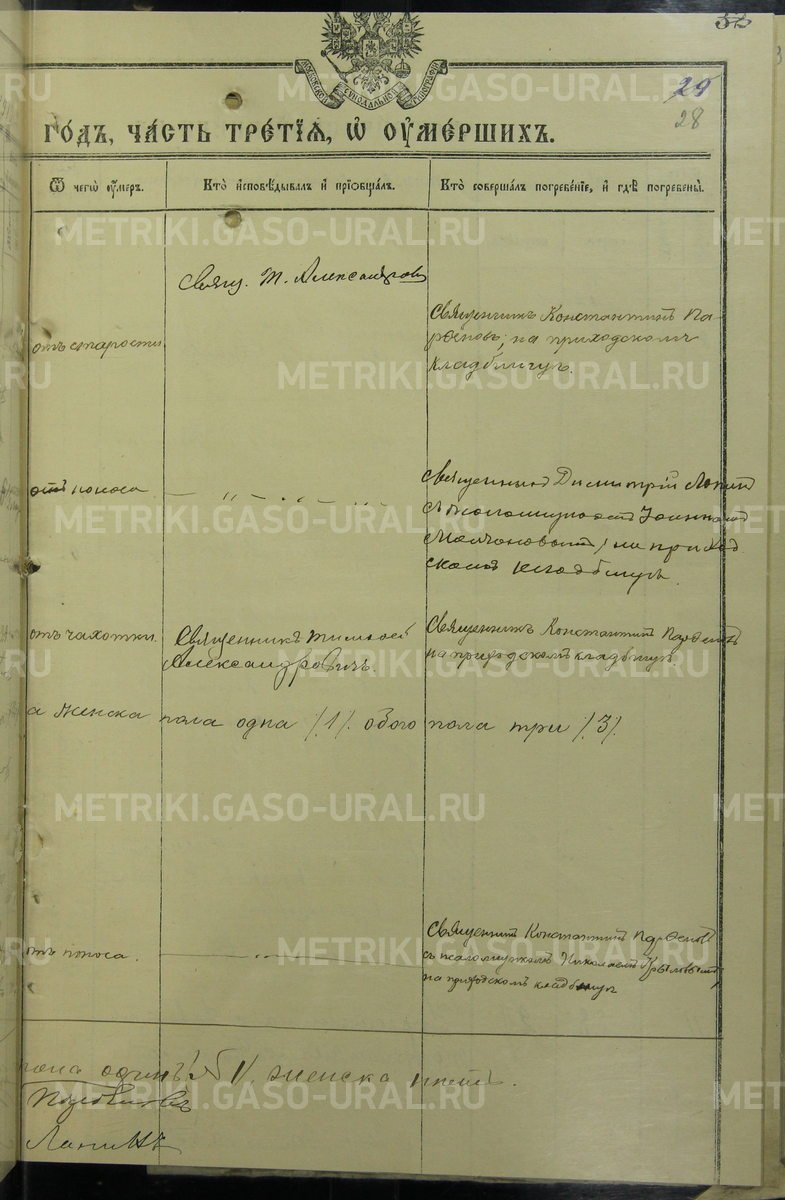 29
28
МОСКОВСКОЙ СѴНОДАЛЬНОЙ ТИПОГРАФІИ
ГО́ДЪ, ЧА́СТЬ ТРЕ́ТЇѦ, Ѡ҆ ОУ҆МЕ́РШИХЪ.
Ѿ чегѡ̀ оу҆́меръ.
Кто̀ и҆сповѣ́дывалъ и҆ прїѻбща́лъ.
Кто̀ соверша́лъ погребе́нїе, и҆ гдѣ̀ погребены̀.
Свящ. Т. Александров
отъ старости
Священникъ Константинъ Па-
рѳеновъ; на приходскомъ
кладбищѣ.
отъ поноса
Священникъ Димитрій Лапинъ
съ псаломщикомъ Іоанномъ
на приход
скомъ кладбищѣ.
отъ чахотки.
Священникъ Тимоѳей
Александровичъ.
Священникъ Константинъ Парѳеновъ
на приходскомъ кладбищѣ.
а женска пола одна /.1/. обоего пола три /.3/.
отъ поноса.
Священникъ Константинъ Парѳеновъ
съ псаломщикомъ Николаемъ Крыловымъ,
на приходскомъ кладбищѣ
пола одинъ женска нѣтъ.
Парѳеновъ
Лапинъ
METRIKI.GASO-URAL.RU